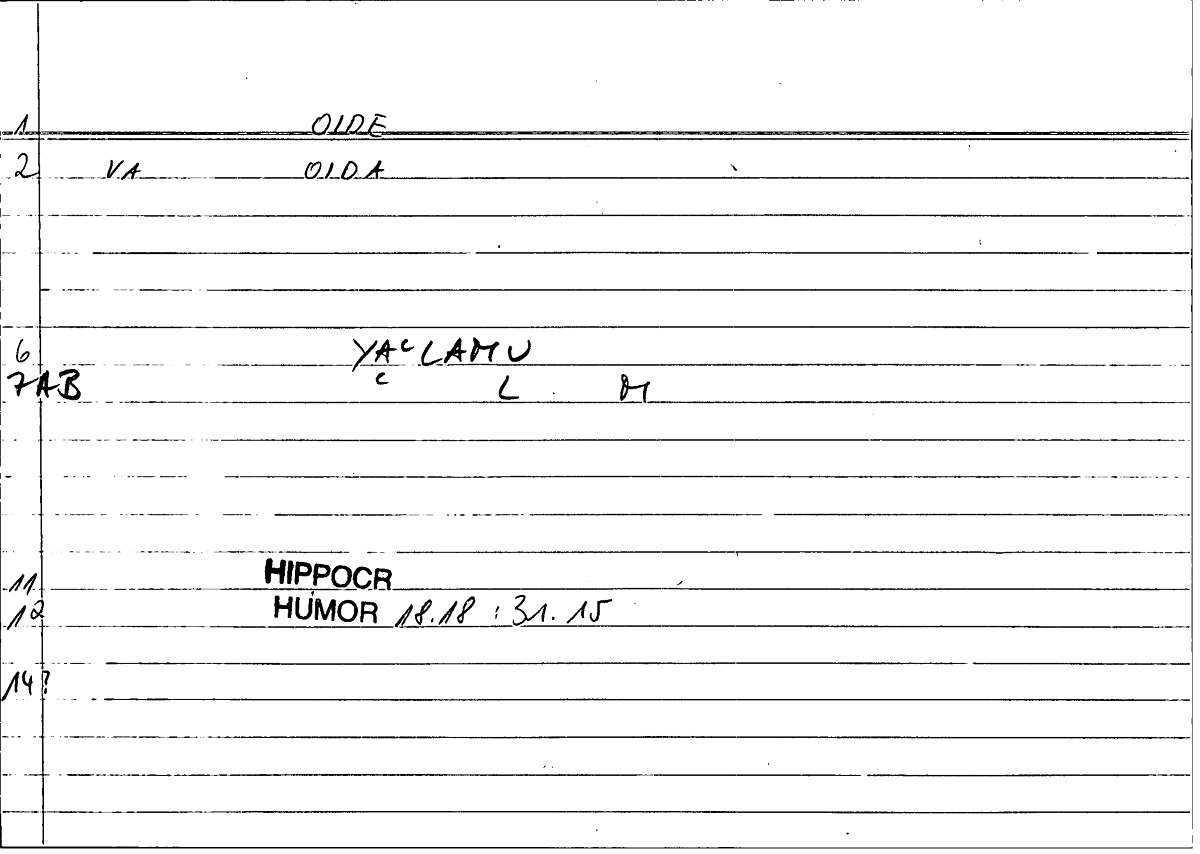 1 OIDE
2 VA OIDA
6 YAᶜLAMU
7AB C L M
11 HIPPOCR
12 HUMOR 18.18 : 31.15
14?